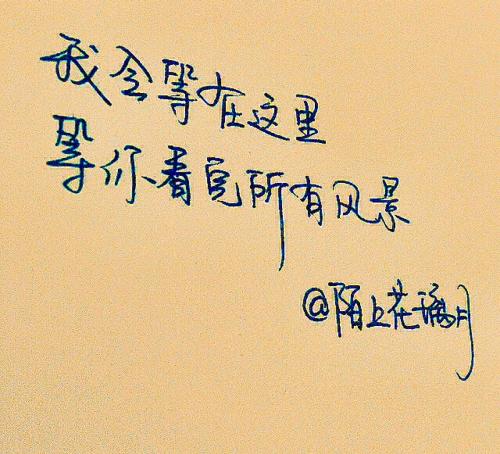 我会等在这里
等你看完所有风景
@陌上花璃月